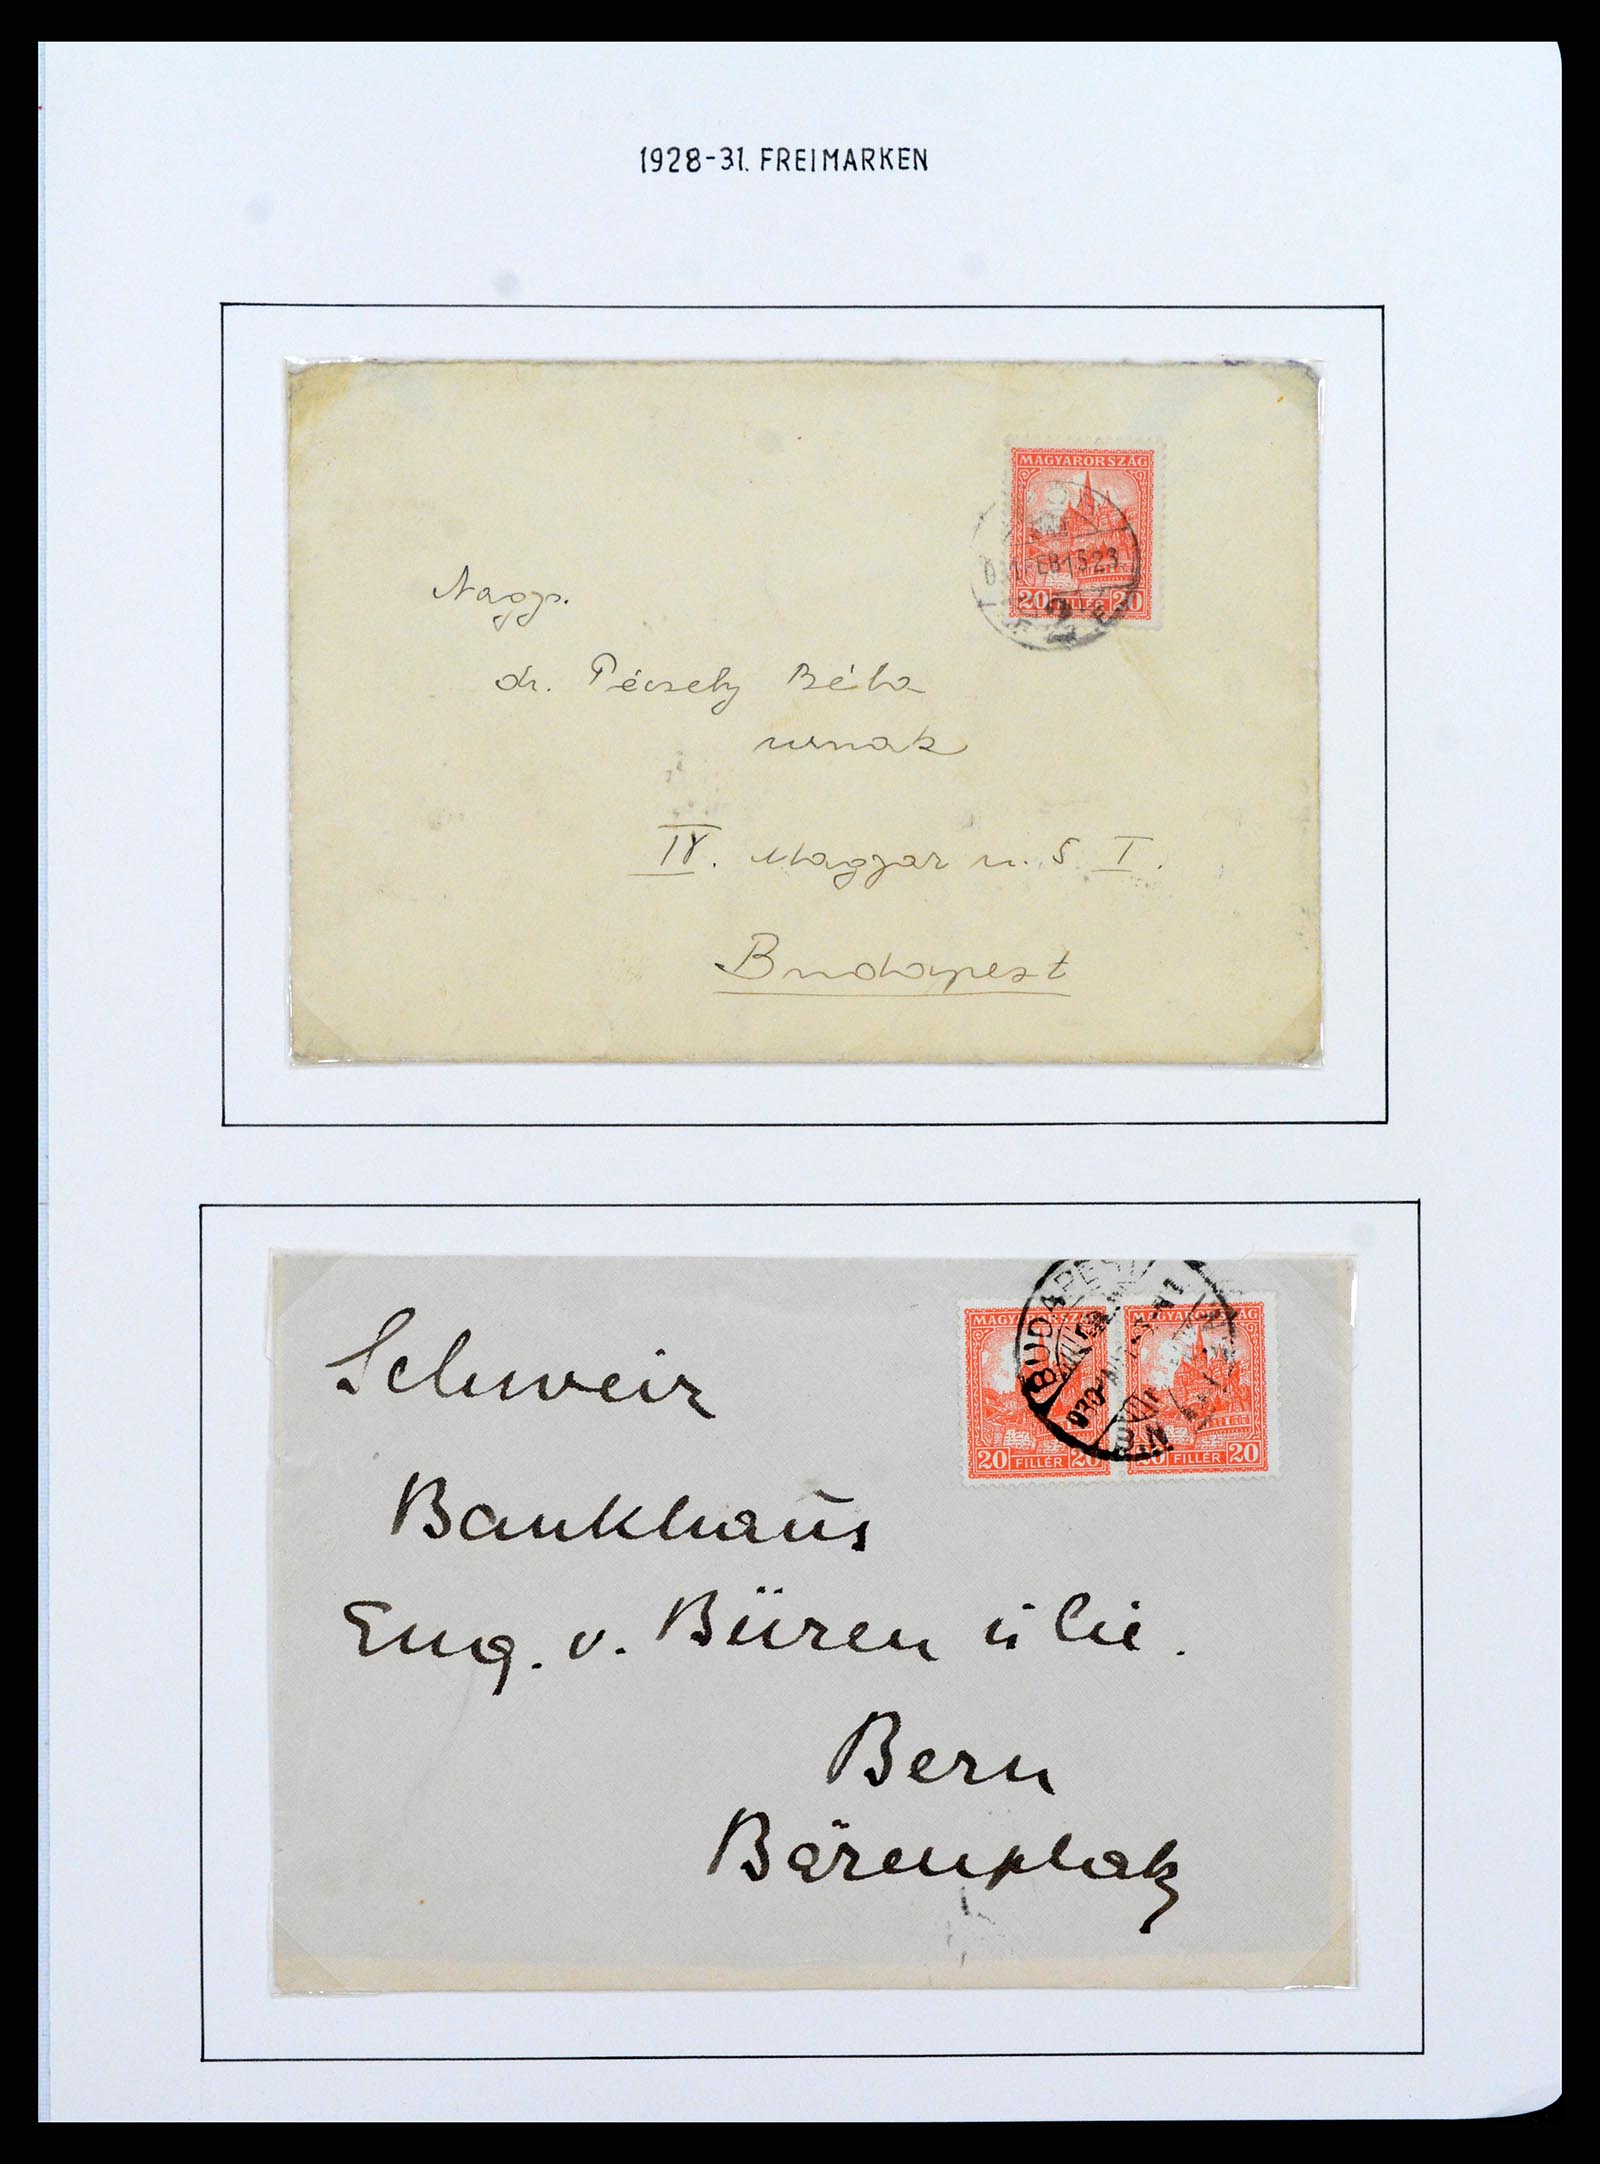 1928-31. FREIMARKEN
MAGYARORSZÁG
20 FILLÉR 20
Nagys.
dr. Pécsely Béla
urnak
IV. Magyar u. 5 I.
Budapest
MAGYARORSZÁG MAGYARORSZÁG
BUDAPEST
20 FILLÉR 20 20 FILLÉR 20
Schweiz
Bankhaus
Eug. v. Büren ū Cie.
Bern
Bärenplatz